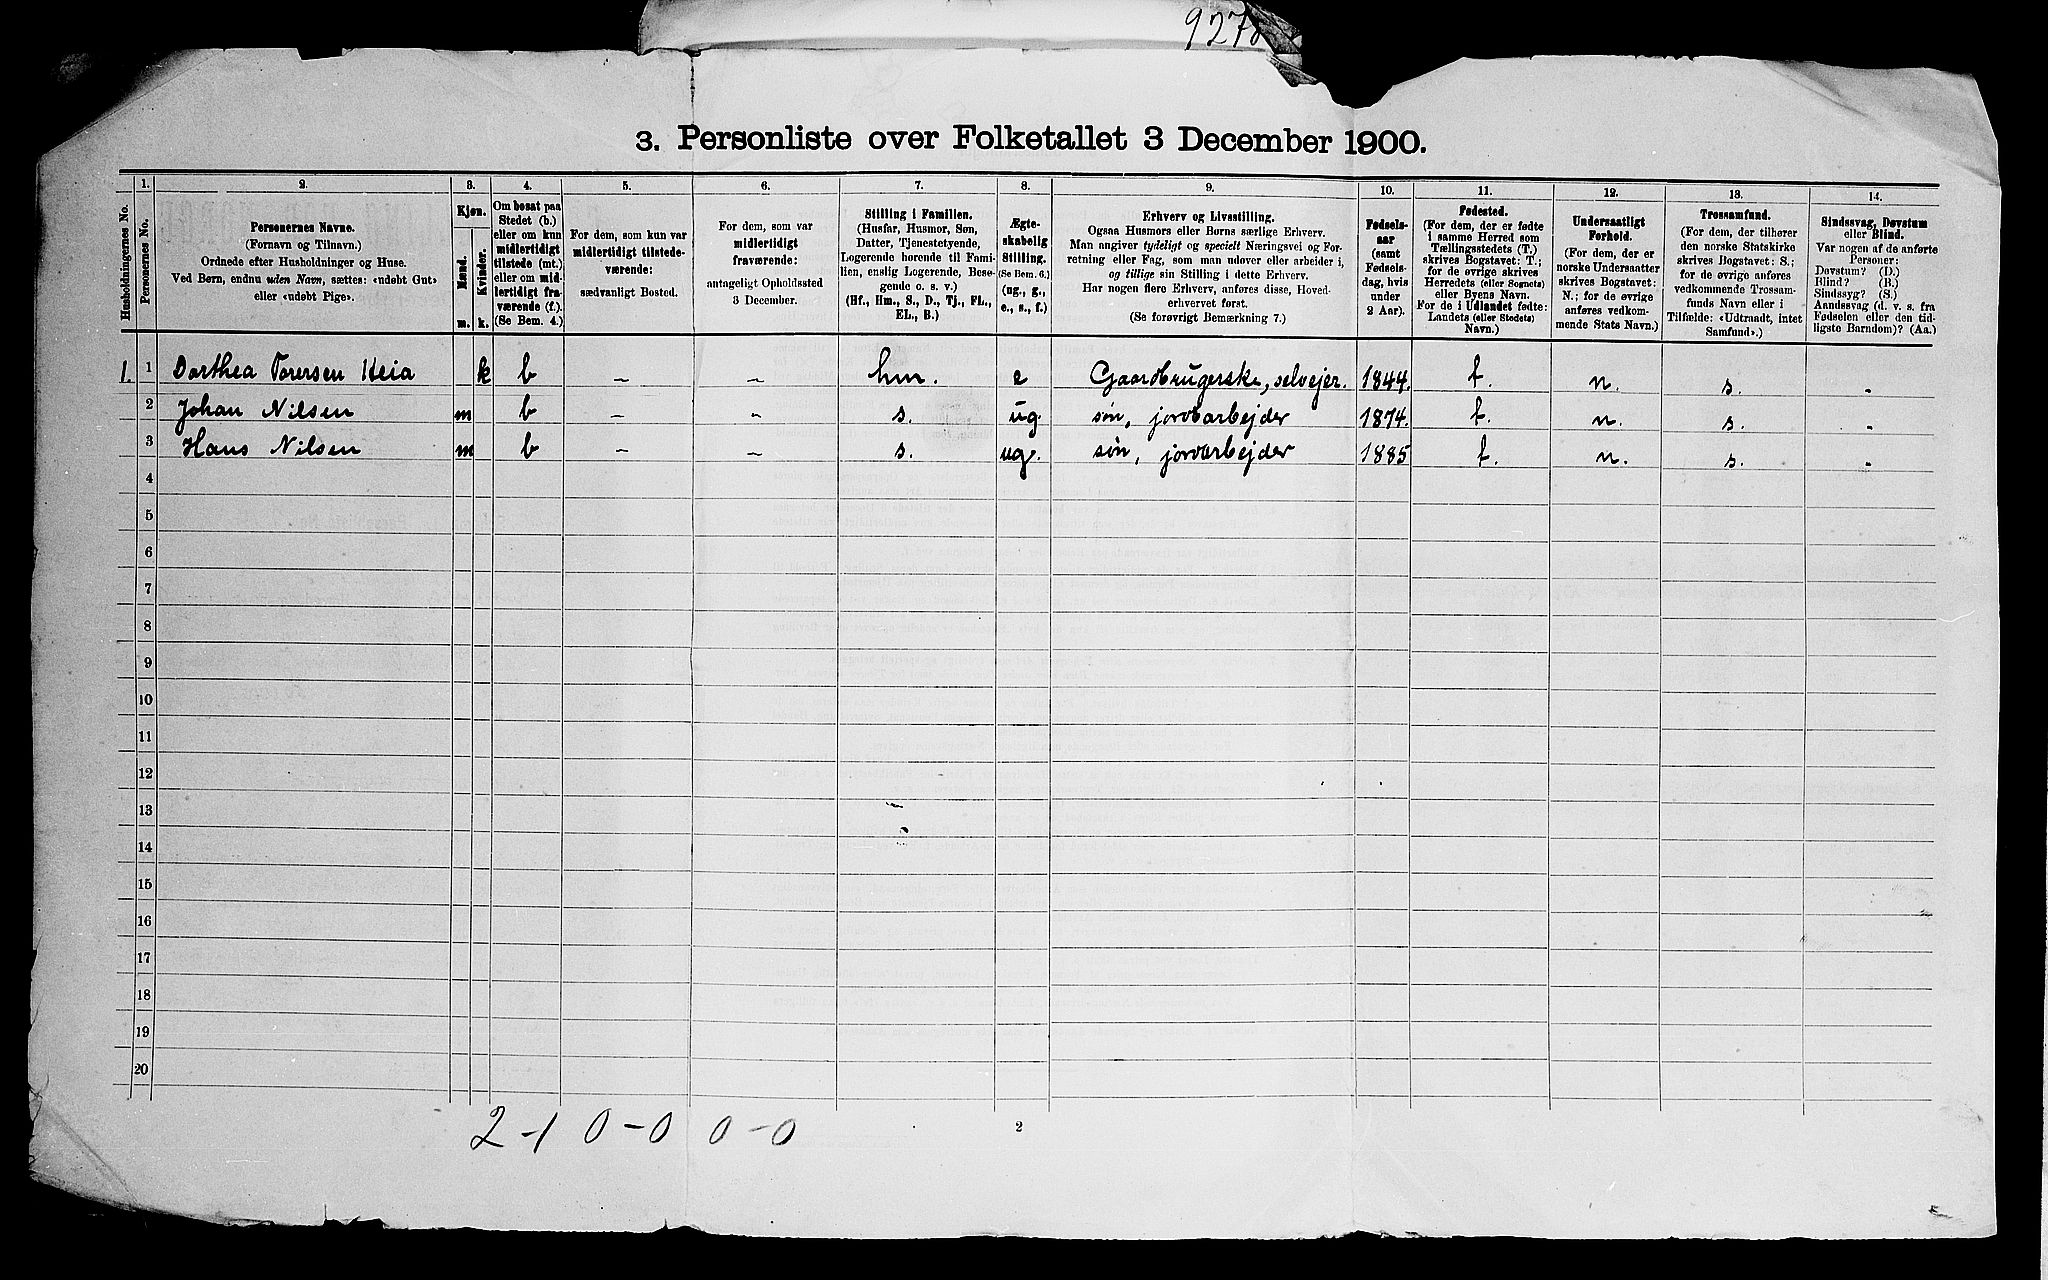 9278
3. Personliste over Folketallet 3 December 1900.
1. 2. 3. 4. 5. 6. 7. 8. 9. 10. 11. 12. 13. 14.
Husholdningernes No.
Personernes No.
Personernes Navne.
(Fornavn og Tilnavn.)
Ordnede efter Husholdninger og Huse.
Ved Børn, endnu uden Navn, sættes: «udøbt Gut»
eller «udøbt Pige».
Kjøn.
Mænd.
Kvinder.
m. k.
Om bosat paa
Stedet (b.)
eller om kun
midlertidigt
tilstede (mt.)
eller om mid-
lertidigt fra-
værende (f.).
(Se Bem. 4.)
For dem, som kun var
midlertidigt tilstede-
værende:
sædvanligt Bosted.
For dem, som var
midlertidigt
fraværende:
antageligt Opholdssted
3 December.
Stilling i Familien.
(Husfar, Husmor, Søn,
Datter, Tjenestetyende,
Logerende hørende til Fami-
lien, enslig Logerende, Besø-
gende o. s. v.)
(Hf., Hm., S., D., Tj., FL.,
EL., B.)
Ægte-
skabelig
Stilling.
(Se Bem. 6.)
(ug., g.,
e., s., f.)
Erhverv og Livsstilling.
Ogsaa Husmors eller Børns særlige Erhverv.
Man angiver tydeligt og specielt Næringsvei og For-
retning eller Fag, som man udøver eller arbeider i,
og tillige sin Stilling i dette Erhverv.
Har nogen flere Erhverv, anføres disse, Hoved-
erhvervet først.
(Se forøvrigt Bemærkning 7.)
Fødsels-
aar
(samt
Fødsels-
dag, hvis
under
2 Aar).
Fødested.
(For dem, der er fødte
i samme Herred som
Tællingsstedets (T.)
skrives Bogstavet: T.;
for de øvrige skrives
Herredets (eller Sognets)
eller Byens Navn.
For de i Udlandet fødte:
Landets (eller Stedets)
Navn.)
Undersaatligt
Forhold.
(For dem, der er
norske Undersaatter
skrives Bogstavet:
N.; for de øvrige
anføres vedkom-
mende Stats Navn.)
Trossamfund.
(For dem, der tilhører
den norske Statskirke
skrives Bogstavet: S.;
for de øvrige anføres
vedkommende Trossam-
funds Navn eller i
Tilfælde: «Udtraadt, intet
Samfund».)
Sindssvag, Døvstum
eller Blind.
Var nogen af de anførte
Personer:
Døvstum? (D.)
Blind? (B.)
Sindssyg? (S.)
Aandssvag (d. v. s. fra
Fødselen eller den tid-
ligste Barndom)? (Aa.)
1. 1 Dorthea Torersen Heia k b – – hm. e Gaardbrugerske, selvejer. 1844. t. n. s. -
2 Johan Nilsen m b – – s. ug. søn, jordarbejder 1874. t. n. s. -
3 Hans Nilsen m b – – s. ug. søn, jordarbejder 1885 t. n. s. -
4
5
6
7
8
9
10
11
12
13
14
15
16
17
18
19
20
2-1 0-0 0-0
2